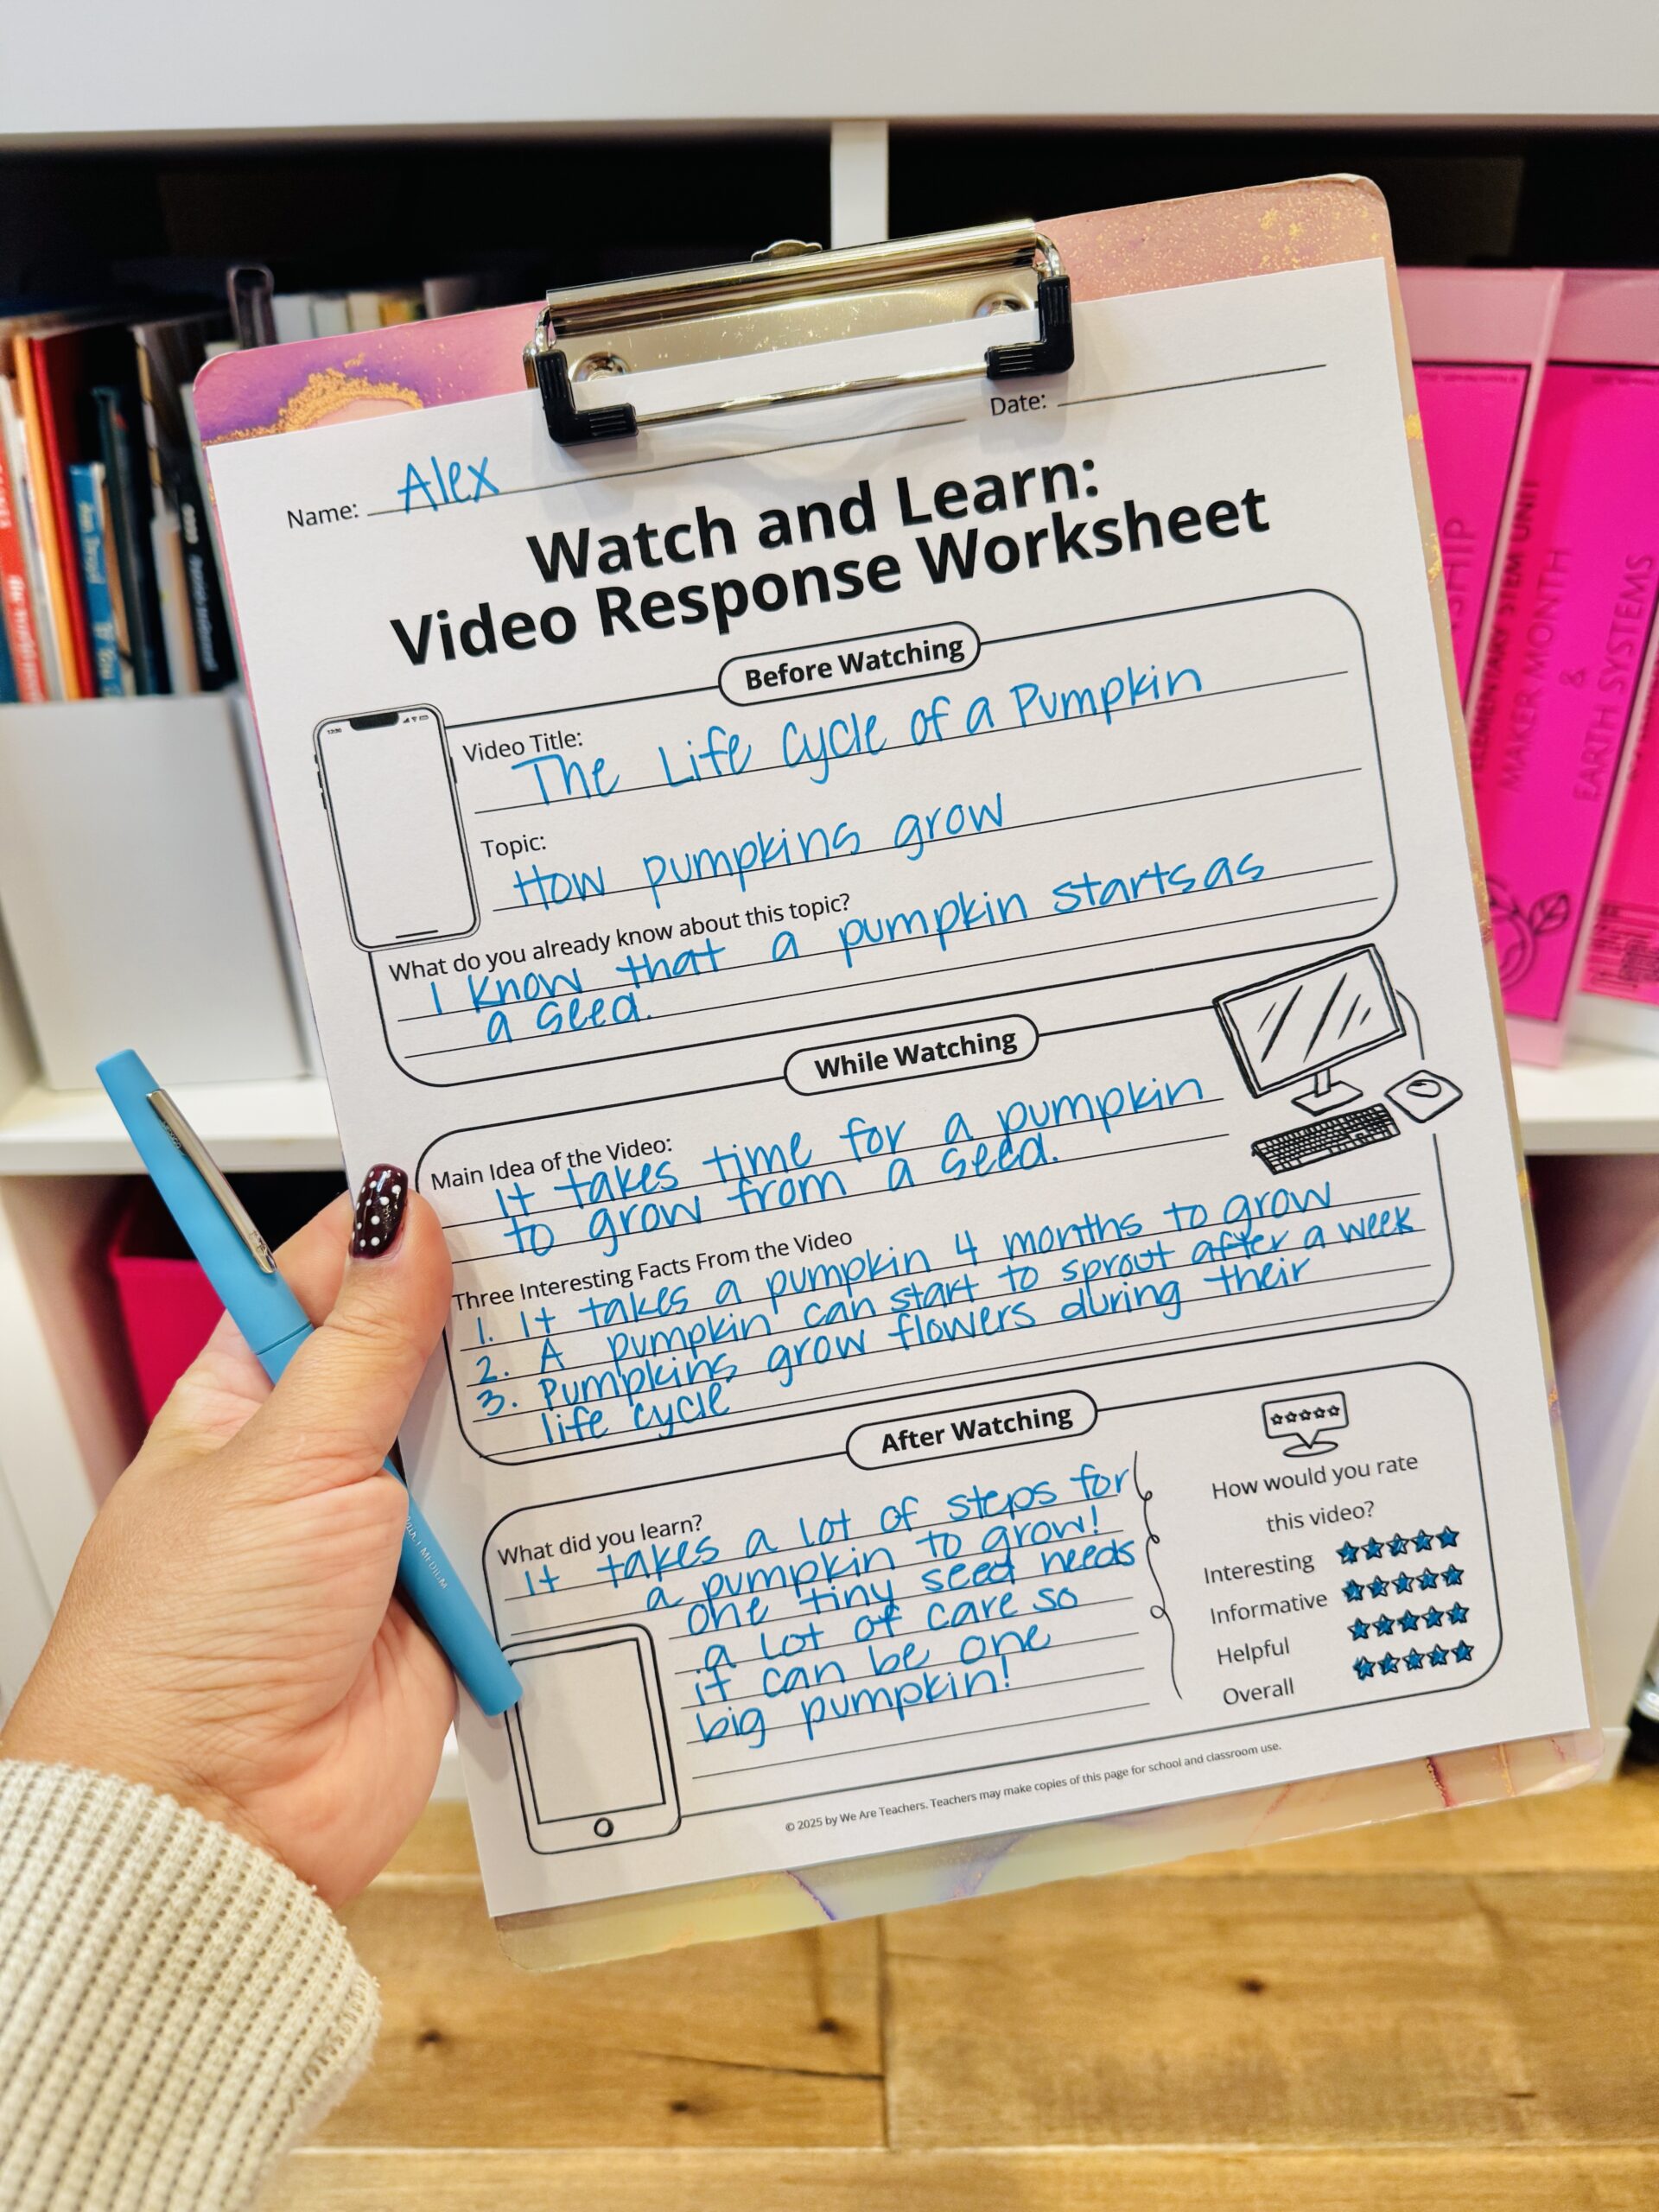 Name: Alex Date:
Watch and Learn:
Video Response Worksheet
Before Watching
Video Title:
The Life Cycle of a Pumpkin
Topic:
How pumpkins grow
What do you already know about this topic?
I know that a pumpkin starts as
a seed.
While Watching
Main Idea of the Video:
It takes time for a pumpkin
to grow from a seed.
Three Interesting Facts From the Video
1. It takes a pumpkin 4 months to grow
2. A pumpkin can start to sprout after a week
3. Pumpkins grow flowers during their
life cycle
After Watching
What did you learn?
It takes a lot of steps for
a pumpkin to grow!
one tiny seed needs
a lot of care so
it can be one
big pumpkin!
How would you rate
this video?
Interesting
Informative
Helpful
Overall
© 2025 by We Are Teachers. Teachers may make copies of this page for school and classroom use.
ELEMENTARY STEM UNIT
MAKER MONTH
&
EARTH SYSTEMS
MEDIUM